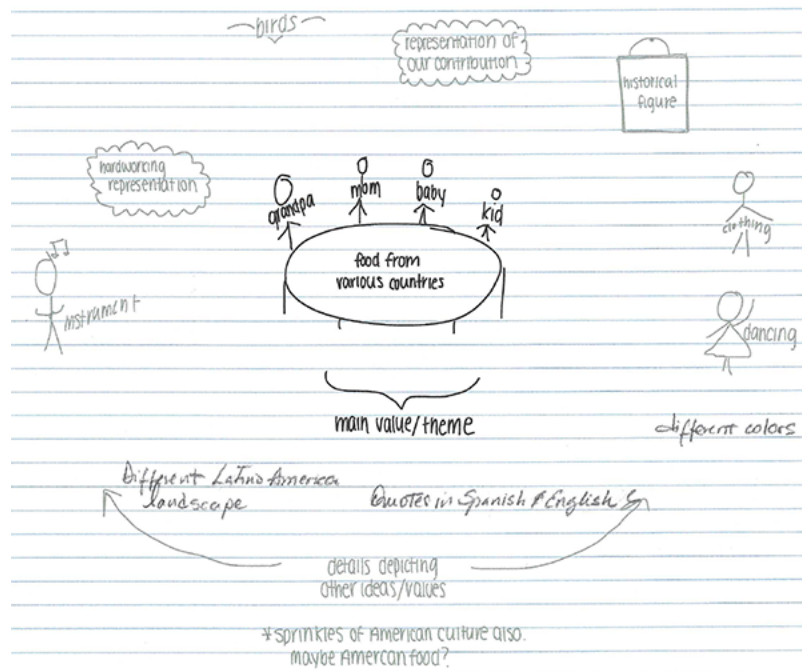 birds
representation of
our contribution
historical
figure
hardworking
representation
grandpa
mom
baby
kid
clothing
food from
various countries
instrument
dancing
main value/theme
different colors
Different Latino America
landscape
Quotes in Spanish & English
details depicting
other ideas/values
*sprinkles of American culture also.
maybe Amercan food?